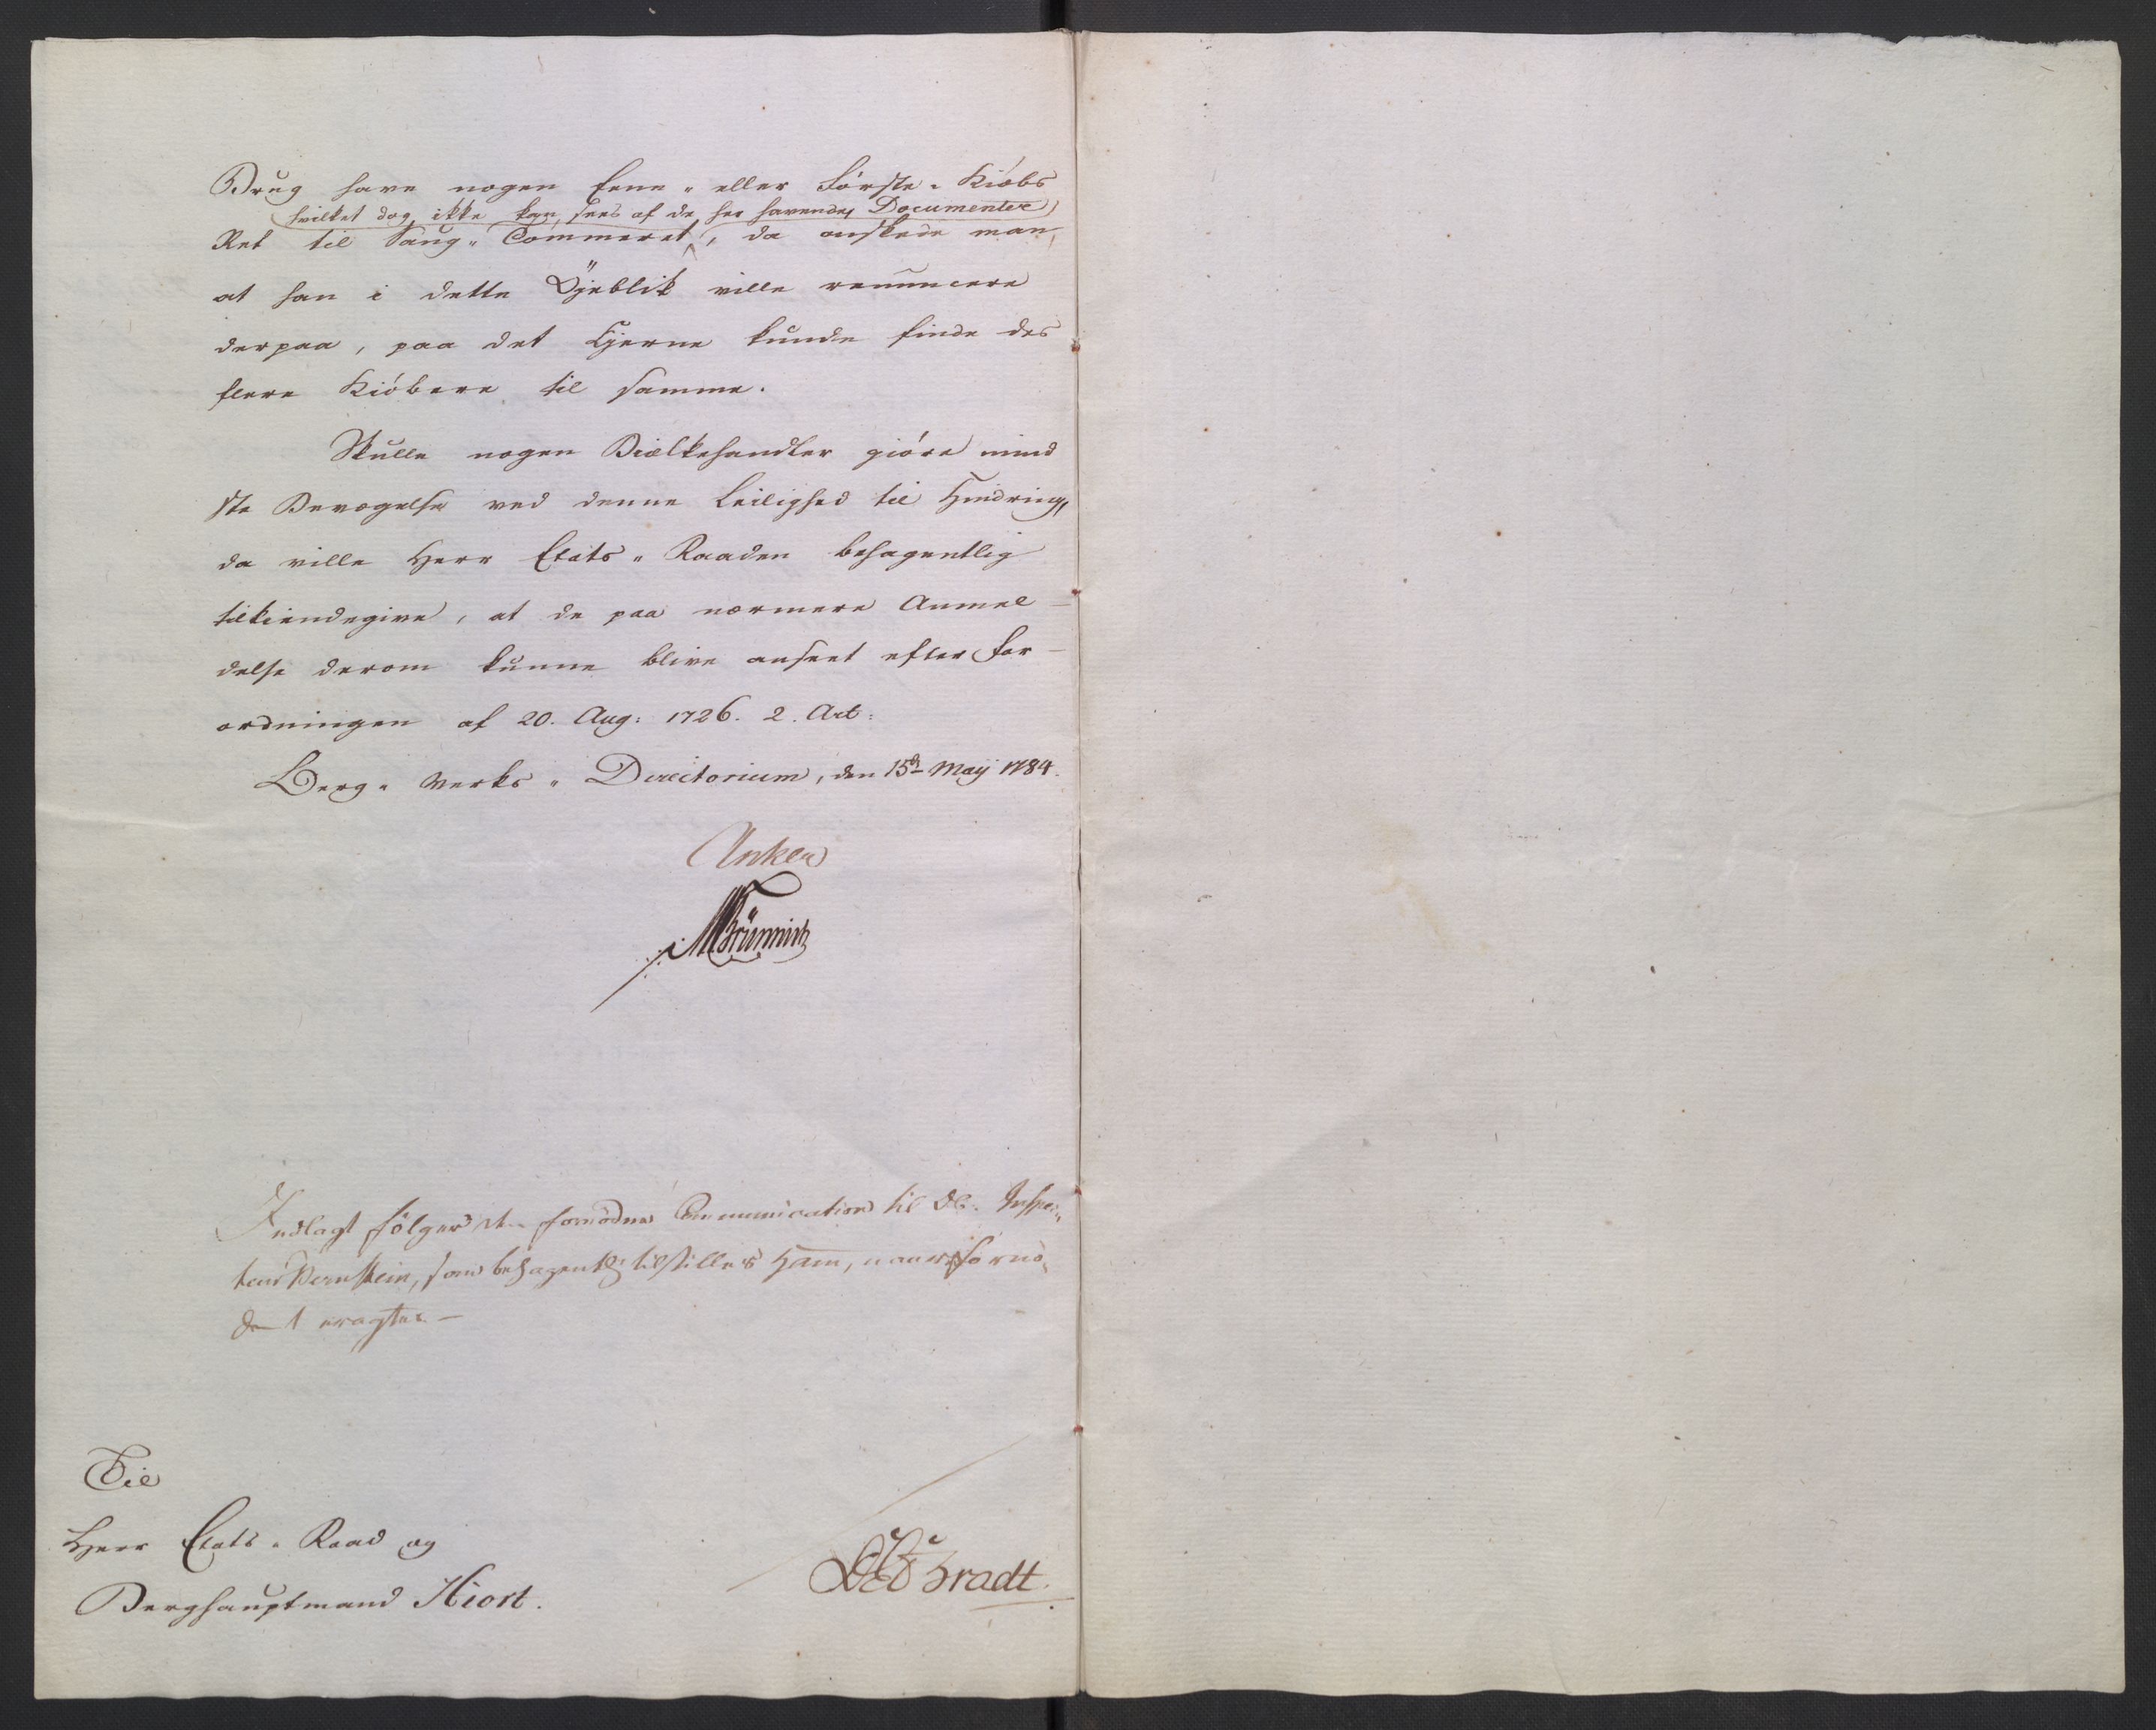 Brug have nogen Eene- eller Første- Kiøbs
(hvilket dog ikke kan sees af de her havende Documenter)
Ret til Saug- Commercet, da ønskede man,
at han i dette Øjeblik ville renuncere
derpaa, paa det Ejerne kunde finde des
flere Kiøbere til samme.
Skulle nogen Bielkehandler giøre mind
ste Bevægelse ved denne Leilighed til Hindring,
da ville Herr Etats- Raaden behagentlig
tilkiendegive, at de paa nærmere Anmel-
delse derom kunne blive anseet efter For-
ordningen af 20. Aug: 1726. 2. Art:
Berg- Werks- Directorium, den 15de May 1784.
Anker
MTBrünnich
Indlagt følger den fornødne Communication til Inspec-
teur Bernstein, som behagentl: tilstilles Ham, naar fornø-
dent eragtes.
Til
Herr Etats- Raad og
Berghauptmand Hiort.
Bradt.